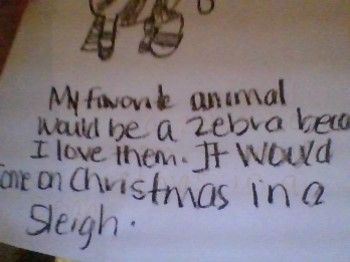 My favorite animal
would be a zebra beca
I love them. It would
ome on Christmas in a
Sleigh.